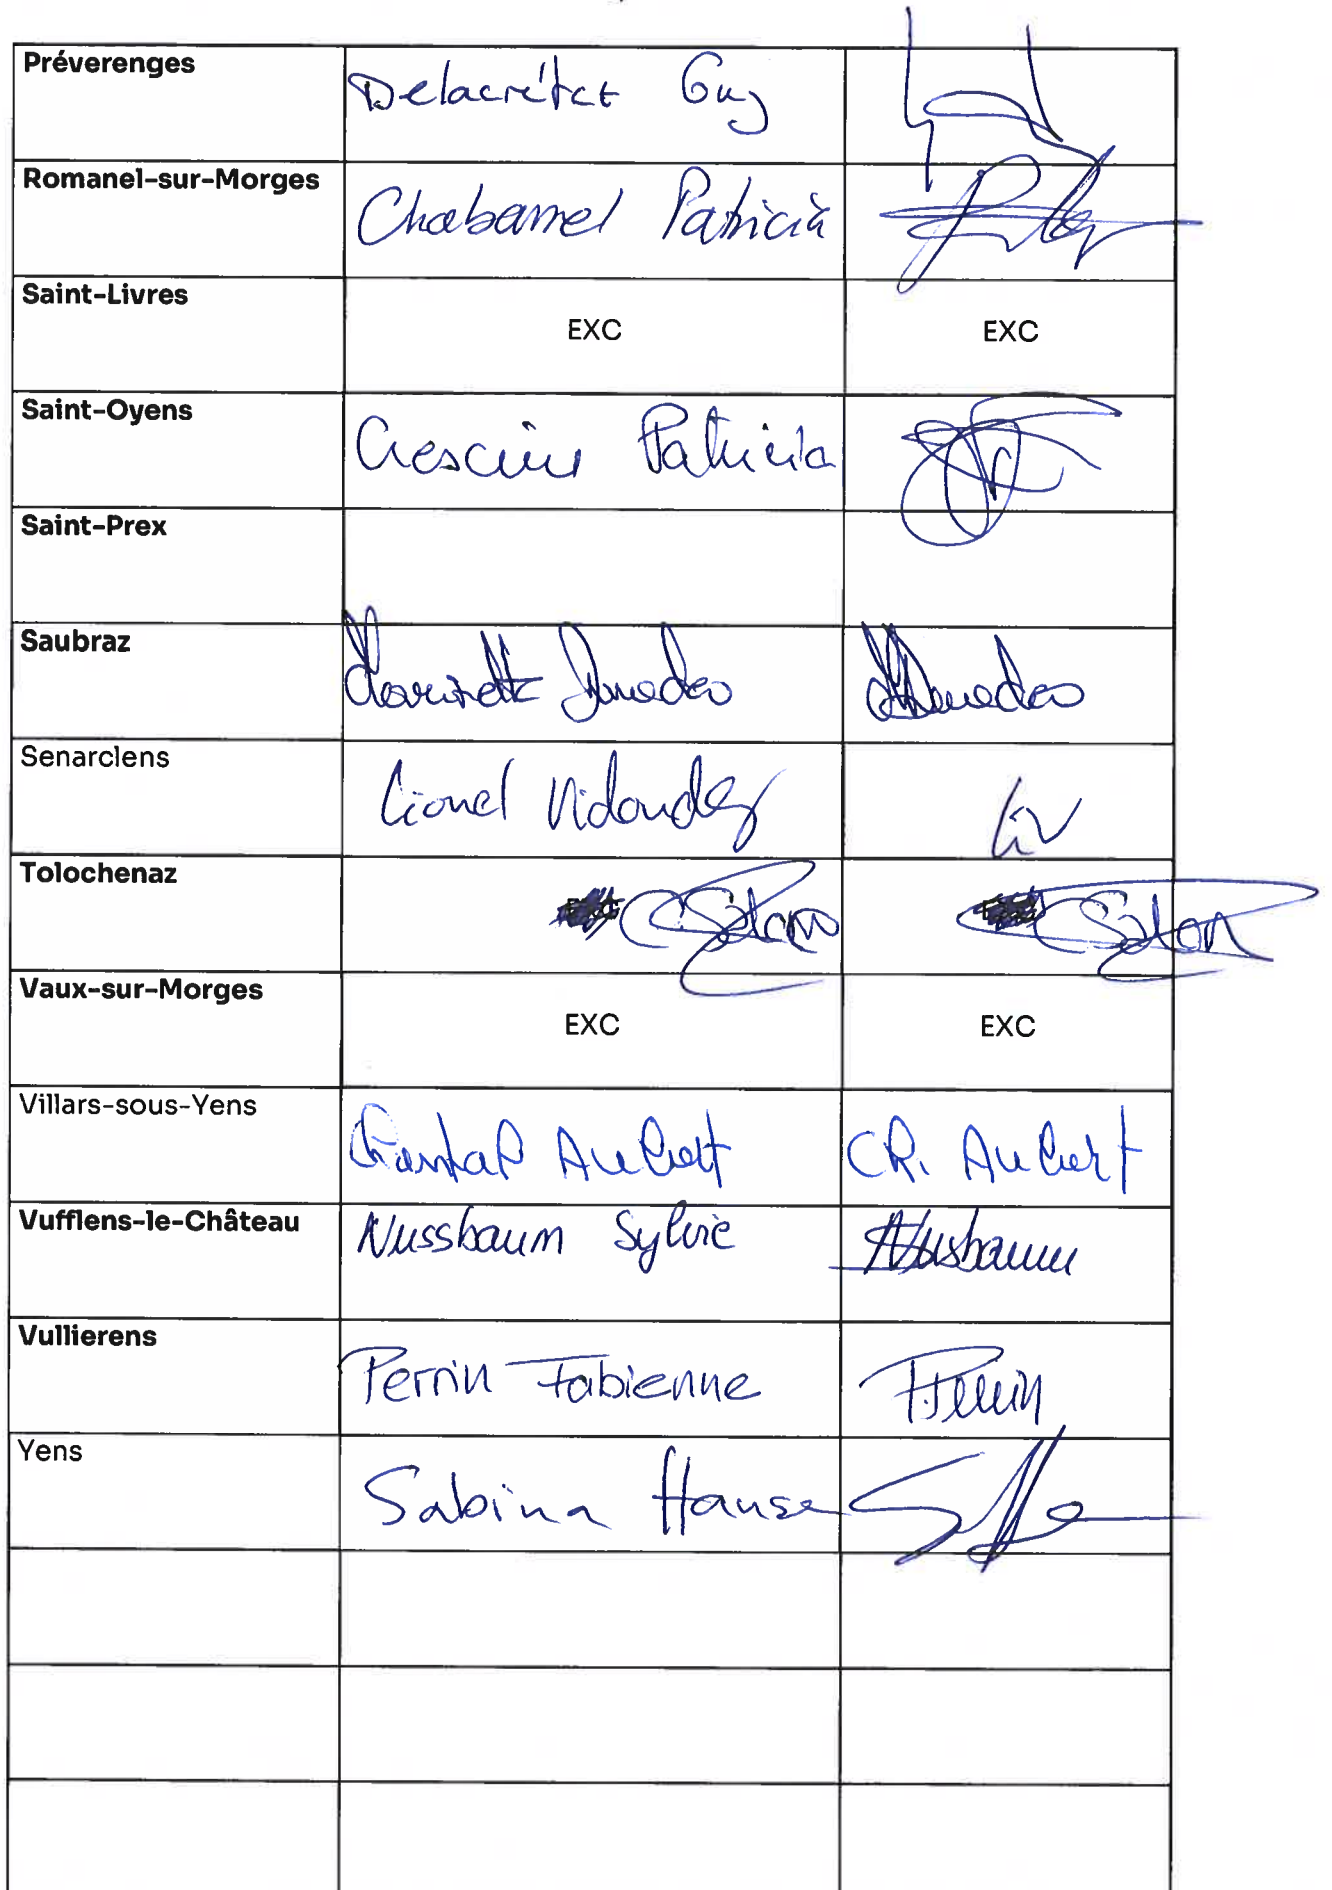 Préverenges Delacrétaz Guy
Romanel-sur-Morges Chabannel Patricia
Saint-Livres EXC EXC
Saint-Oyens Patricia
Saint-Prex
Saubraz Amedeo Amedeo
Senarclens Lionel Vidoudez LV
Tolochenaz
Vaux-sur-Morges EXC EXC
Villars-sous-Yens Chantal Aubert Ch. Aubert
Vufflens-le-Château Nussbaum Sylvie Nussbaum
Vullierens Perrin Fabienne F.Perrin
Yens Sabina Hanse